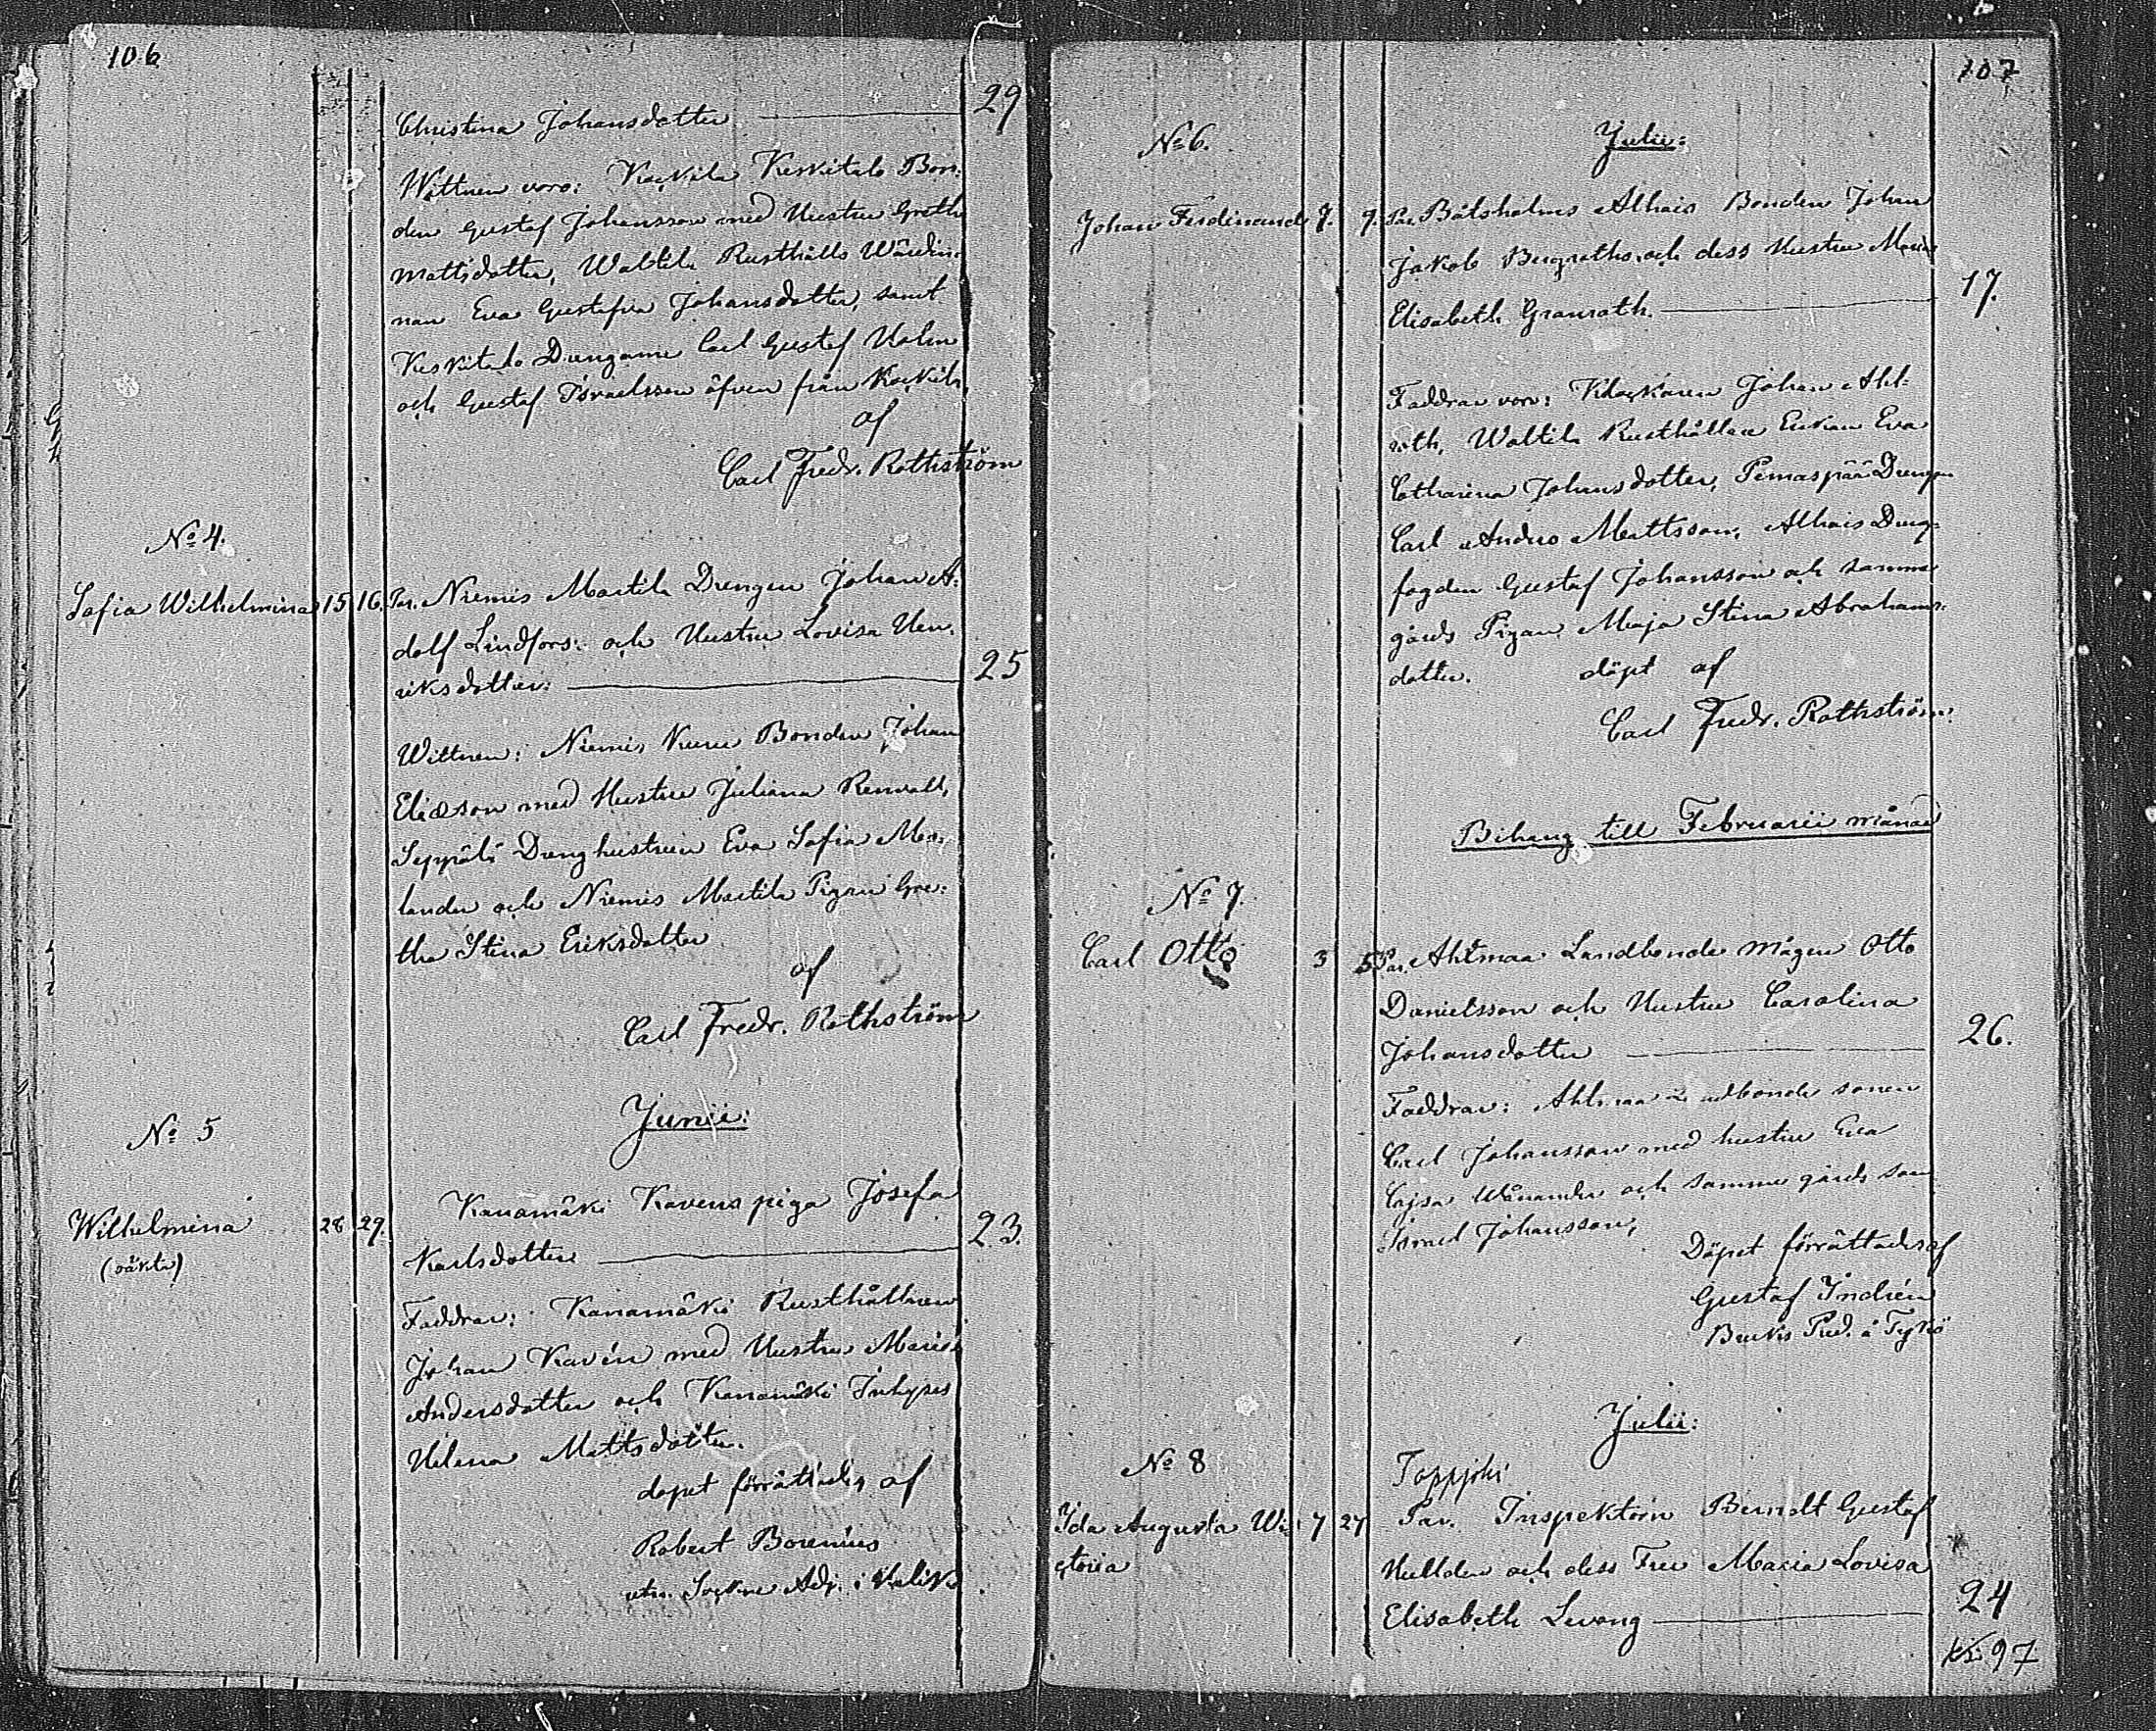 106
Christina Johansdotter 29
Wittnen voro: Koskila Keskitalo Bon-
den Gustaf Johansson med Hustru Greth
Mattsdotter, Waltila Rusthålls Wärdin-
nan Eva Gustafva Johansdotter, samt
Keskitalo Drengarne Carl Gustaf Holm
och Gustaf Israelsson äfven från Koskila.
af
Carl Fredr. Rothström
No 4.
Sofia Wilhelmina 15 16. Par. Niemis Martila Drengen Johan A-
dolf Lindfors: och Hustru Lovisa Hen-
riksdotter: 25
Wittnen: Niemis Kuru Bonden Johan
Eliæson med Hustru Juliana Renvall,
Seppälä Dreng hustrun Eva Sofia Mo-
lander och Niemis Martila Pigan Gre-
tha Stina Eriksdotter
af
Carl Fredr. Rothström
Junii:
No 5
Wilhelmina 28 29. Kanamäki Kavens piga Josefa
(oäkta) Karlsdotter 23.
Faddrar: Kanamäki Rusthållaren
Johan Kavén med Hustru Maria
Andersdotter och Kanamäki Inhyses
Helena Mattsdotter.
dopet förrättades af
Robert Borenius
Sockne Adj. i
107
Julii:
No 6.
Johan Ferdinand 7. 9. Par. Båtsholms Alhais Bonden Johan
Jakob Bergroth och dess Hustru Maria
Elisabeth Granroth. 17.
Faddrar voro: Klockaren Johan Ahl-
roth, Waltila Rusthållare Enkan Eva
Catharina Johansdotter, Pemaspää Drengen
Carl Andres Mattsson, Alhais Dreng-
fogden Gustaf Johansson och samma
gårds Pigan Maja Stina Abrahams-
dotter. döpt af
Carl Fredr. Rothström.
Bihang till Februarii månad
No 7.
Carl Otto 3 5 Par. Ahtmaa Landbonde mågen Otto
Danielsson och Hustru Carolina
Johansdotter 26.
Faddrar: Ahtmaa Landbonde sonen
Carl Johansson med hustru Eva
Cajsa Wånander och samma gårds son
Israel Johansson,
Döpet förrättades af
Gustaf Indrén
Bruks Pred. å Tykö
Julii:
No 8
Toppjoki
Ida Augusta Wi- 7 27 Par. Inspektorn Berndt Gustaf
ctoria Hellden och dess Fru Maria Lovisa
Elisabeth Levong 24
97